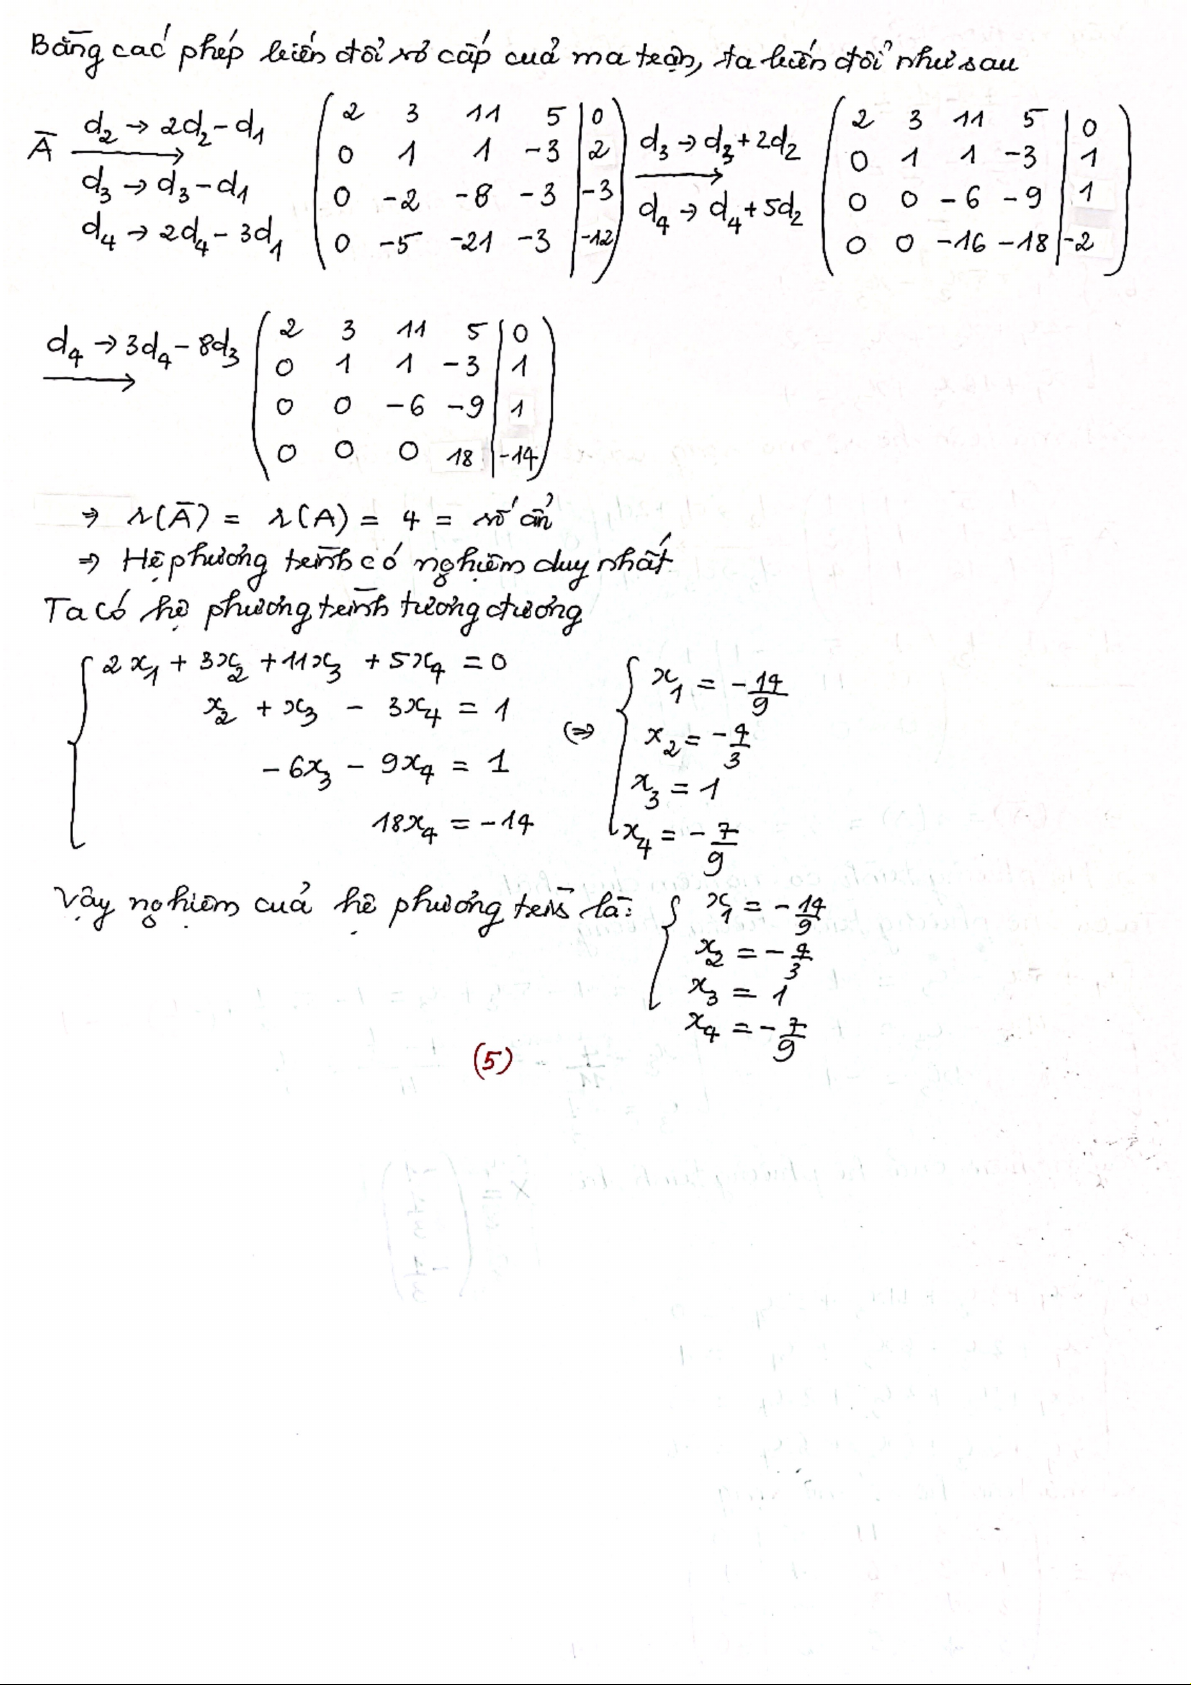 Bằng các phép biến đổi sơ cấp của ma trận, ta biến đổi như sau
Ā d₂ → 2d₂ - d₁ d₃ → d₃ - d₁ d₄ → 2d₄ - 3d₁ ( 2 3 11 5 | 0
0 1 1 -3 | 2
0 -2 -8 -3 | -3
0 -5 -21 -3 | -12 ) d₃ → d₃ + 2d₂ d₄ → d₄ + 5d₂ ( 2 3 11 5 | 0
0 1 1 -3 | 1
0 0 -6 -9 | 1
0 0 -16 -18 | -2 )
d₄ → 3d₄ - 8d₃ ( 2 3 11 5 | 0
0 1 1 -3 | 1
0 0 -6 -9 | 1
0 0 0 18 | -14 )
⇒ r(Ā) = r(A) = 4 = số ẩn
⇒ Hệ phương trình có nghiệm duy nhất
Ta có hệ phương trình tương đương
{ 2x₁ + 3x₂ + 11x₃ + 5x₄ = 0
x₂ + x₃ - 3x₄ = 1
-6x₃ - 9x₄ = 1
18x₄ = -14
⇔ { x₁ = -14/9
x₂ = -4/3
x₃ = 1
x₄ = -7/9
Vậy nghiệm của hệ phương trình là: { x₁ = -14/9
x₂ = -4/3
x₃ = 1
x₄ = -7/9
(5)